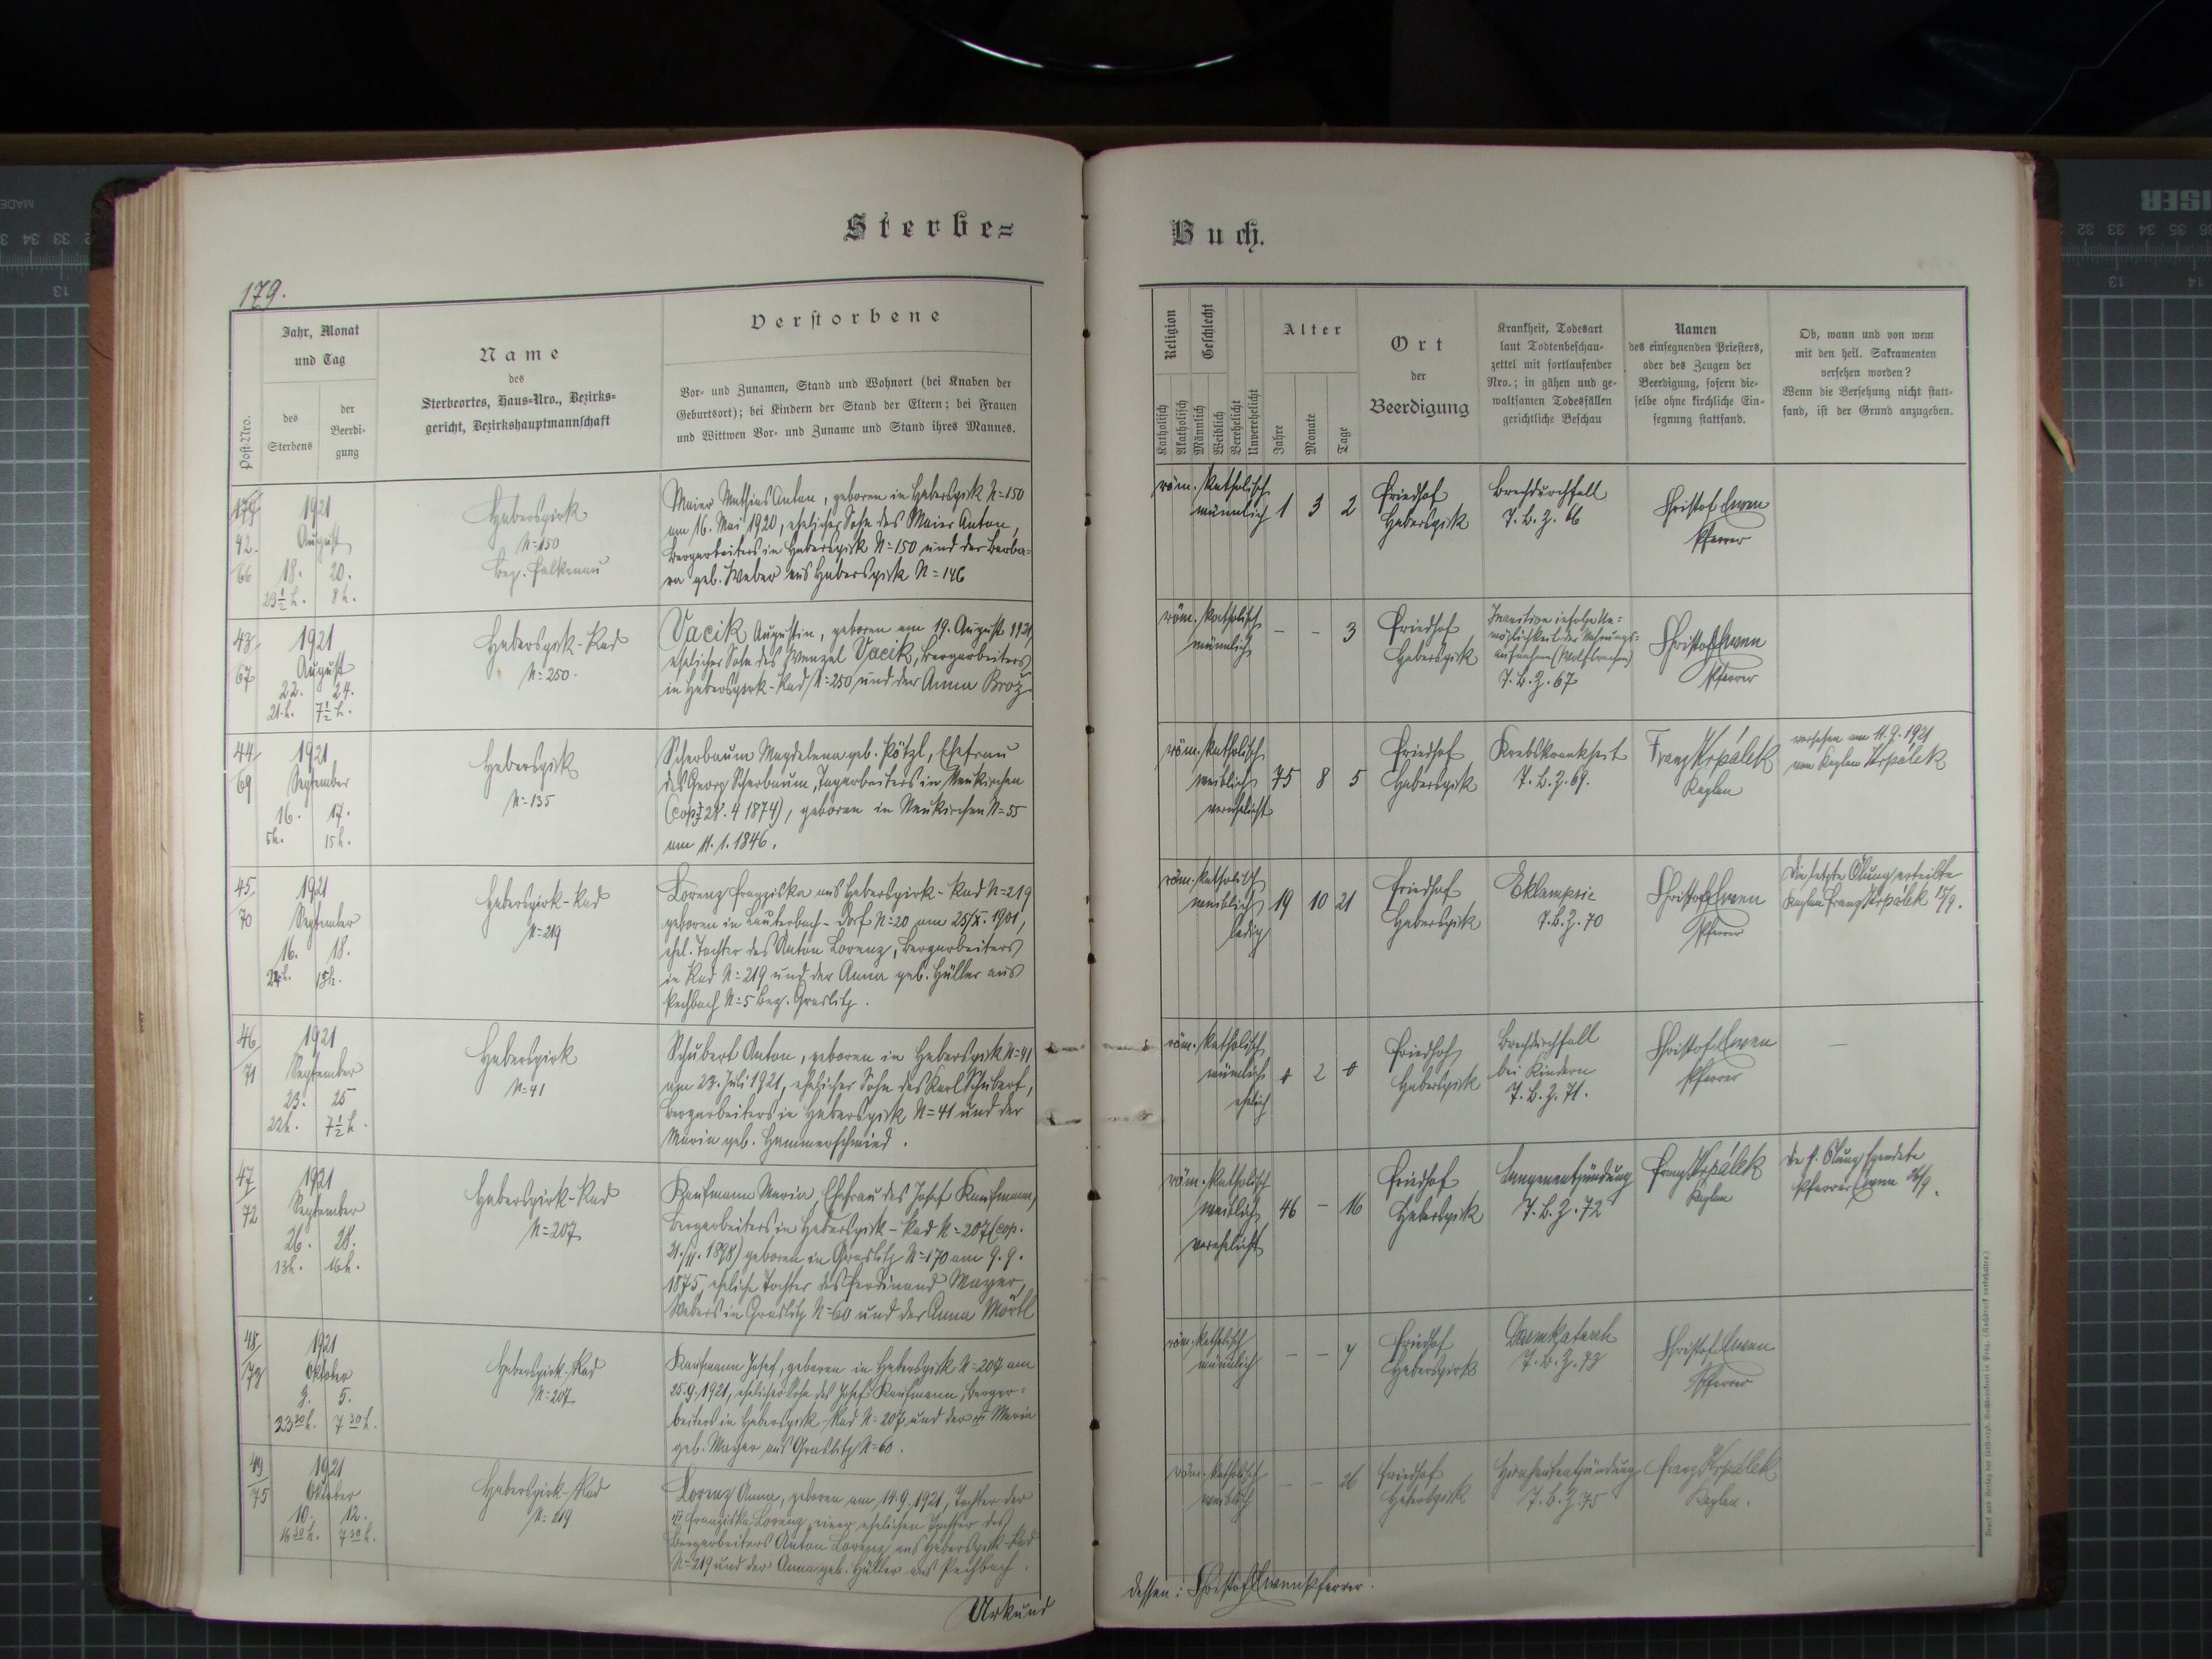 Sterbe=
Buch.
179.
Post-Nro.
Jahr, Monat
und Tag
des
Sterbens
der
Beerdi-
gung
Name
des
Sterbeortes, Haus=Nro., Bezirks=
gericht, Bezirkshauptmannschaft
Verstorbene
Vor- und Zunamen, Stand und Wohnort (bei Knaben der
Geburtsort); bei Kindern der Stand der Eltern; bei Frauen
und Wittwen Vor- und Zuname und Stand ihres Mannes.
Religion
Katholisch
Akatholisch
Geschlecht
Männlich
Weiblich
Verehelicht
Unverehelicht
Alter
Jahre
Monate
Tage
Ort
der
Beerdigung
Krankheit, Todesart
laut Todtenbeschau-
zettel mit fortlaufender
Nro.; in gähen und ge-
waltsamen Todesfällen
gerichtliche Beschau
Namen
des einsegnenden Priesters,
oder des Zeugen der
Beerdigung, sofern die-
selbe ohne kirchliche Ein-
segnung stattfand.
Ob, wann und von wem
mit den heil. Sakramenten
versehen worden?
Wenn die Versehung nicht statt-
fand, ist der Grund anzugeben.
42.
66
1921
August
18. 20.
23½ h. 8 h.
Haberspirk
N=150
Bez. Falkenau
Maier Mathias Anton, geboren in Haberspirk N=150
am 16. Mai 1920, ehelicher Sohn des Maier Anton,
Bergarbeiters in Haberspirk N=150 und der Barba-
ra geb. Weber aus Haberspirk N=146
röm. katholisch
männlich
1 3 2
Friedhof
Haberspirk
Brechdurchfall
T.B.Z. 66
Christof
Pfarrer
43/
67
1921
August
22. 24.
21 h. 7½ h.
Haberspirk-Rad
N=250.
Vacik Augustin, geboren am 19. August 1921,
ehelicher Sohn des Wenzel Vacik, Bergarbeiters
in Haberspirk-Rad N=250 und der Anna Brož
röm. katholisch
männlich
- - 3
Friedhof
Haberspirk
Inanition infolge Un=
möglichkeit der Nahrungs=
aufnahme (Wolfsrachen)
T.B.Z. 67
Christof
Pfarrer
44/
69
1921
September
16. 17.
5h. 15 h.
Haberspirk
N=135
Scherbaum Magdalena geb. Pötzl, Ehefrau
des Georg Scherbaum, Tagarbeiters in Neukirchen
(cop. 28. 4 1874), geboren in Neukirchen N=55
am 11. 1. 1846.
röm. katholisch
weiblich
verehelicht
75 8 5
Friedhof
Haberspirk
Krebskrankheit
T.B.Z. 69.
Franz Krpálek
Kaplan
versehen am 11.9.1921
von Kaplan Krpálek
45/
70
1921
September
16. 18.
24h. 15h.
Haberspirk-Rad
N=219
Lorenz Franziska aus Haberspirk-Rad N=219
geboren in Lauterbach-Dorf N=20 am 25/X. 1901,
ehel. Tochter des Anton Lorenz, Bergarbeiters
in Rad N=219 und der Anna geb. Hüller aus
Pechbach N=5 Bez. Graslitz.
röm. katholisch
weiblich
ledig
19 10 21
Friedhof
Haberspirk
Eklampsie
T.B.Z. 70
Christof
Pfarrer
Die letzte Ölung erteilte
Kaplan Franz Krpálek 15/9.
46/
71
1921
September
23. 25
22h. 7½ h.
Haberspirk
N=41
Schubert Anton, geboren in Haberspirk N=41
am 23. Juli 1921, ehelicher Sohn des Karl Schubert,
Bergarbeiters in Haberspirk N=41 und der
Maria geb. Hammerschmied.
röm. katholisch
männlich
ehelich
2
Friedhof
Haberspirk
Brechdurchfall
bei Kindern
T.B.Z. 71.
Christof
Pfarrer
—
47/
72
1921
September
26. 28.
13h. 16h.
Haberspirk-Rad
N=207
Kaufmann Maria, Ehefrau des Josef Kaufmann,
Bergarbeiters in Haberspirk-Rad N=207 (cop.
1898) geboren in Graslitz N=170 am 9.9.
1875, eheliche Tochter des Ferdinand Mayer,
Webers in Graslitz N=60 und der Anna Mörtl
röm. katholisch
weiblich
verehelicht
46 - 16
Friedhof
Haberspirk
Lungenentzündung
T.B.Z. 72
Franz Krpálek
Kaplan
Die h. Ölung spendete
Pfarrer 26/9.
48/
1921
Oktober
3. 5.
23 30 h. 7 30 h.
Haberspirk-Rad
N=207
Kaufmann Josef, geboren in Haberspirk N=207 am
25.9.1921, ehelicher Sohn des Josef Kaufmann, Bergar=
beiters in Haberspirk-Rad N=207 und der Maria
geb. Mayer aus Graslitz N=60.
röm. katholisch
männlich
- -
Friedhof
Haberspirk
Darmkatarrh
T.B.Z.
Christof
Pfarrer
49/
75
1921
Oktober
10. 12.
16 30 h. 7 30 h.
Haberspirk-Rad
N=219
Lorenz Anna, geboren am 14.9.1921, Tochter der
Franziska Lorenz, einer ehelichen Tochter des
Bergarbeiters Anton Lorenz aus Haberspirk-Rad
N=219 und der Anna geb. Hüller aus Pechbach.
röm. katholisch
weiblich
- - 26
Friedhof
Haberspirk
Hirnhautentzündung
T.B.Z. 75
Franz Krpálek
Kaplan.
Urkund
dessen: Christof Pfarrer.